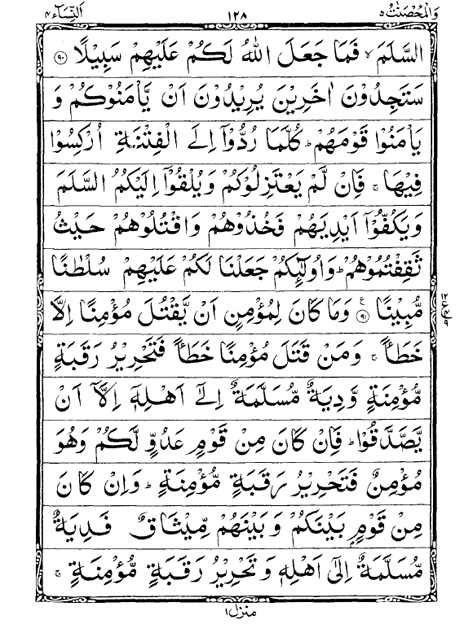 والمحصنت ۵ ١٢٨ النسآء ۴
السَّلَمَ ۙ فَمَا جَعَلَ اللّٰهُ لَكُمْ عَلَيْهِمْ سَبِيْلًا ﴿۹۰﴾
سَتَجِدُوْنَ اٰخَرِيْنَ يُرِيْدُوْنَ اَنْ يَّاْمَنُوْكُمْ وَ
يَاْمَنُوْا قَوْمَهُمْ ؕ كُلَّمَا رُدُّوْۤا اِلَى الْفِتْنَةِ اُرْكِسُوْا
فِيْهَا ۚ فَاِنْ لَّمْ يَعْتَزِلُوْكُمْ وَيُلْقُوْۤا اِلَيْكُمُ السَّلَمَ
وَيَكُفُّوْۤا اَيْدِيَهُمْ فَخُذُوْهُمْ وَاقْتُلُوْهُمْ حَيْثُ
ثَقِفْتُمُوْهُمْ ؕ وَاُولٰٓئِكُمْ جَعَلْنَا لَكُمْ عَلَيْهِمْ سُلْطٰنًا
مُّبِيْنًا ﴿۹۱﴾ ع وَمَا كَانَ لِمُؤْمِنٍ اَنْ يَّقْتُلَ مُؤْمِنًا اِلَّا
خَطَـًٔا ۚ وَمَنْ قَتَلَ مُؤْمِنًا خَطَـًٔا فَتَحْرِيْرُ رَقَبَةٍ
مُّؤْمِنَةٍ وَّدِيَةٌ مُّسَلَّمَةٌ اِلٰۤى اَهْلِهٖۤ اِلَّاۤ اَنْ
يَّصَّدَّقُوْا ؕ فَاِنْ كَانَ مِنْ قَوْمٍ عَدُوٍّ لَّكُمْ وَهُوَ
مُؤْمِنٌ فَتَحْرِيْرُ رَقَبَةٍ مُّؤْمِنَةٍ ؕ وَاِنْ كَانَ
مِنْ قَوْمٍۭ بَيْنَكُمْ وَبَيْنَهُمْ مِّيْثَاقٌ فَدِيَةٌ
مُّسَلَّمَةٌ اِلٰۤى اَهْلِهٖ وَتَحْرِيْرُ رَقَبَةٍ مُّؤْمِنَةٍ ۚ
منزل ۱